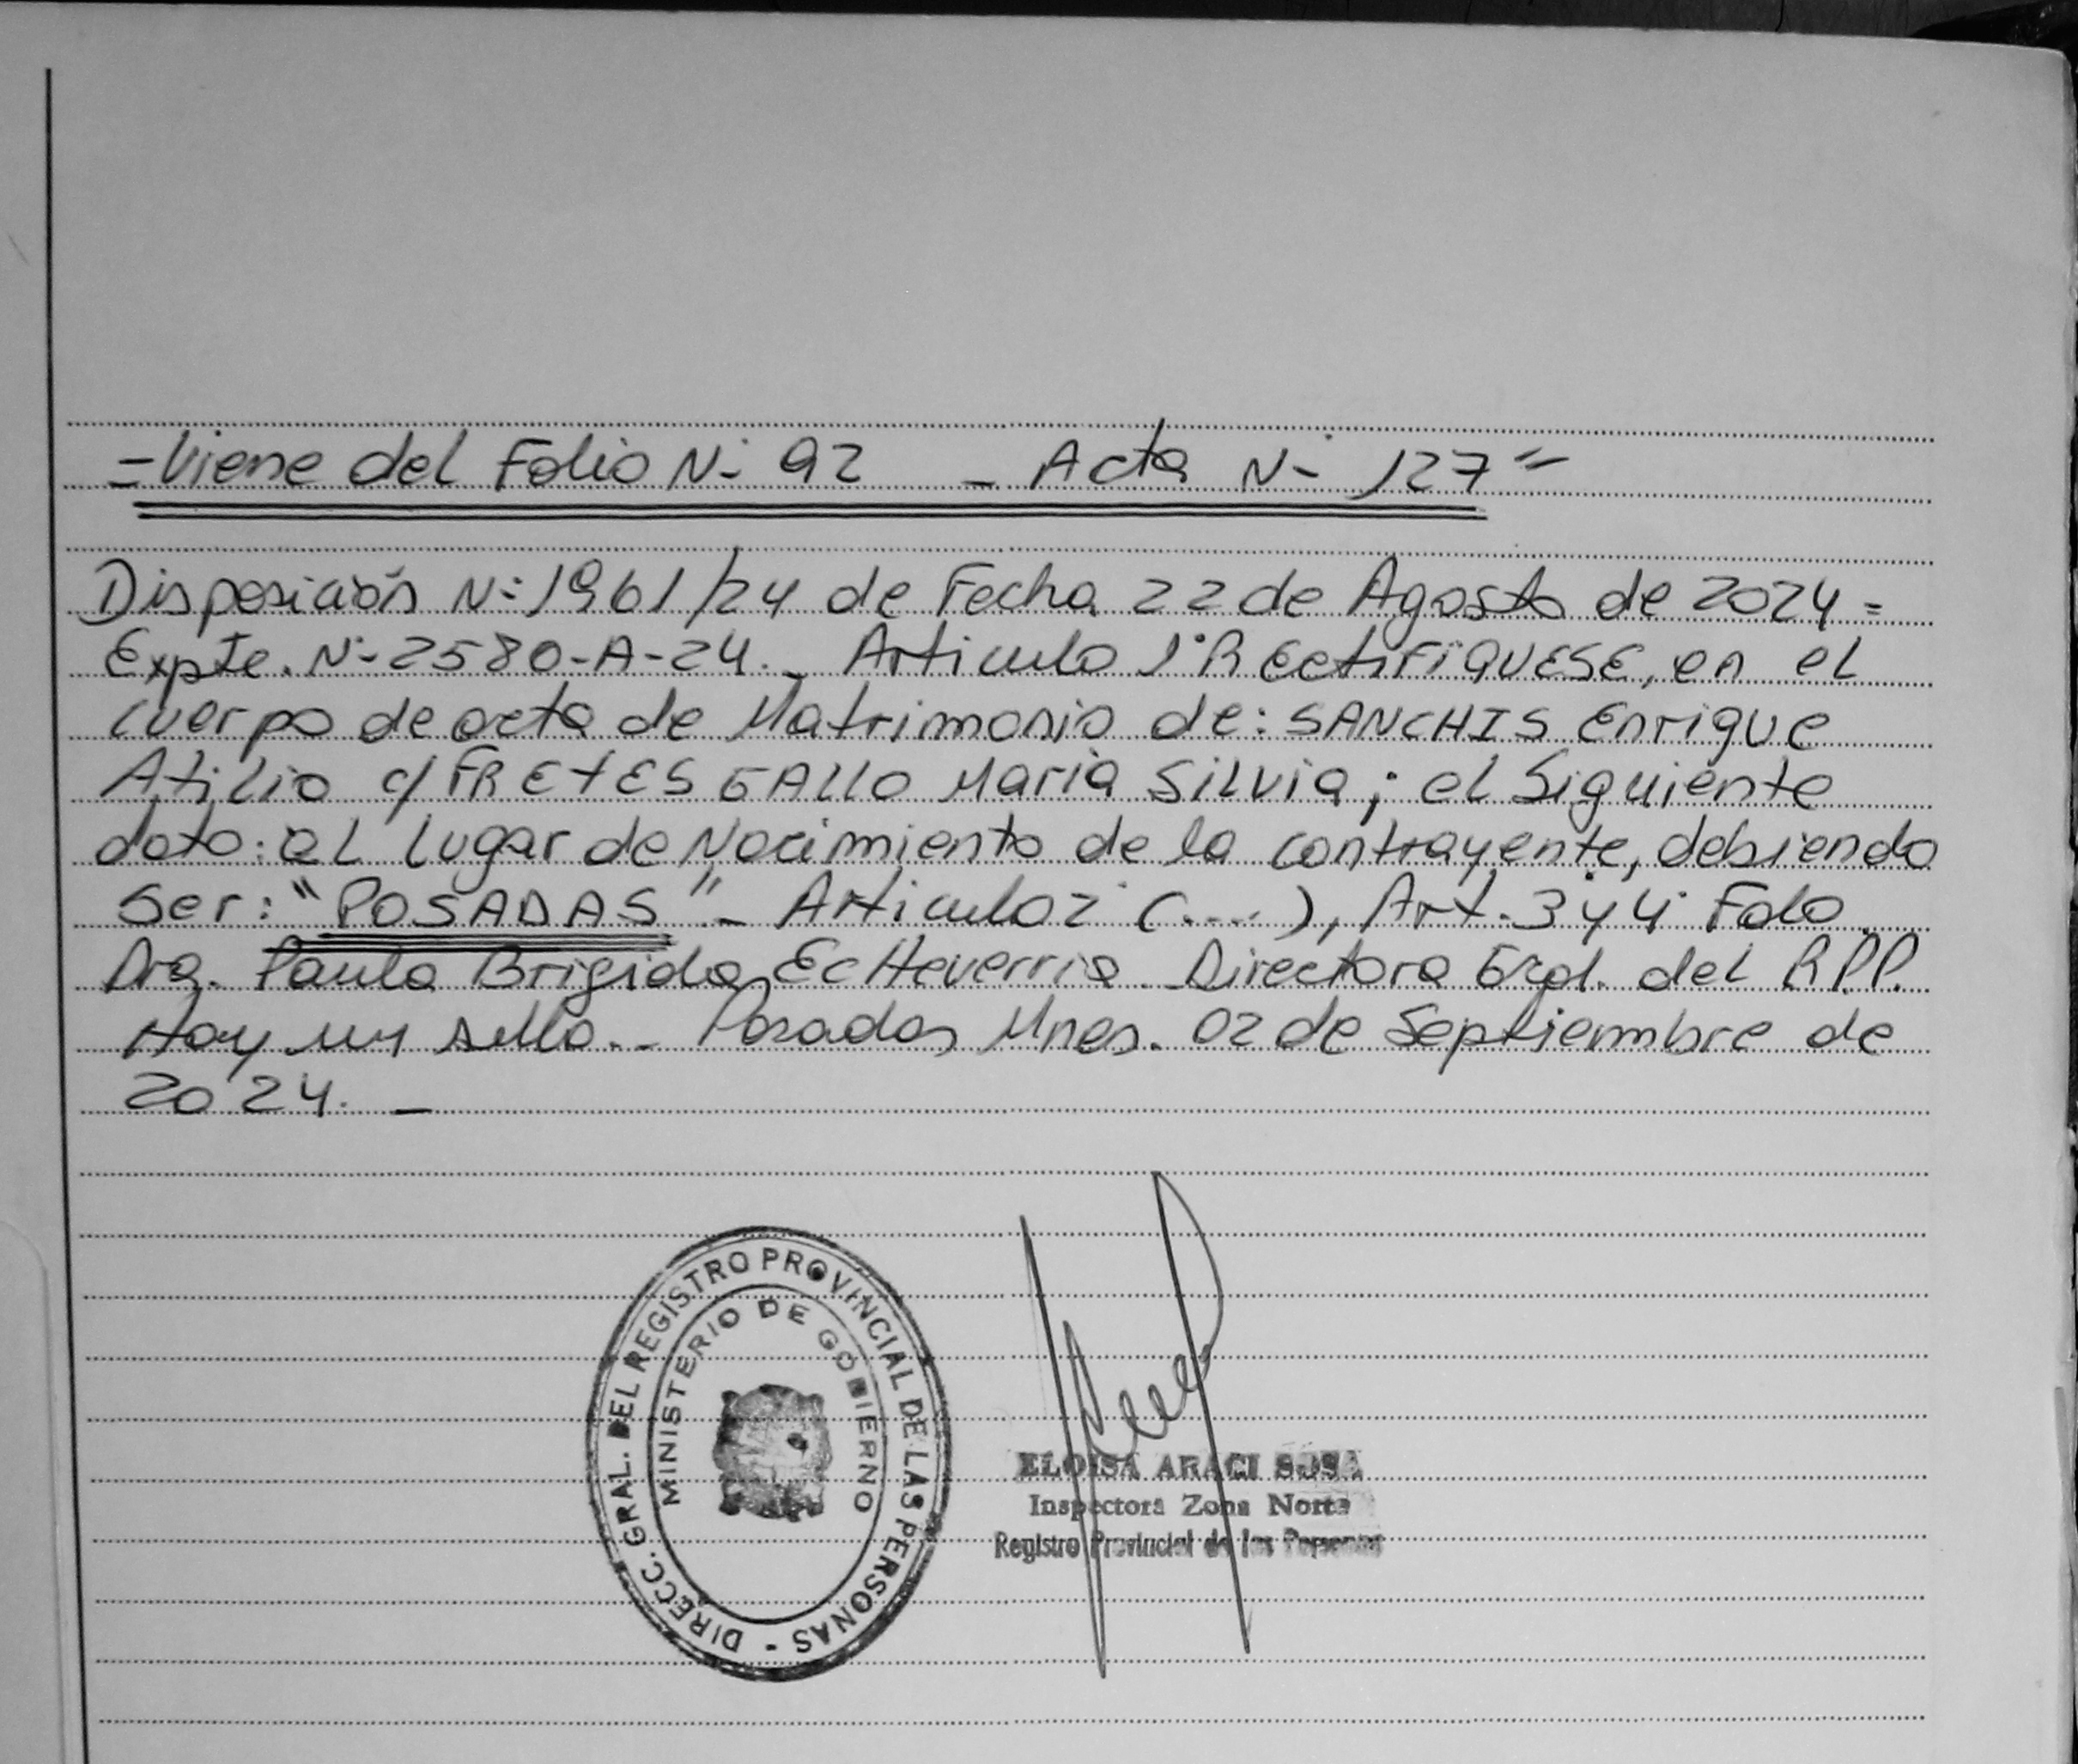 =Viene del Folio N: 92 - Acta N- 127"
Disposición N: 1961/24 de Fecha 22 de Agosto de 2024=
Expte. N-2580-A-24.- Articulo 1° RECtiFiQUESE, en el
cuerpo de acta de Matrimonio de: SANCHIS Enrique
Atilio c/ FREtES GALLO Maria Silvia; el Siguiente
dato: al lugar de Nacimiento de la contrayente, debiendo
Ser: "POSADAS"- Articulo 2° (....), Art. 3° y 4° Fdo
Dra. Paula Brigida EcHeverria Directora Gral. del R.P.P.
Hay un sello.- Posadas Mnes. 02 de Septiembre de
2024. -
DIRECC. GRAL. DEL REGISTRO PROVINCIAL DE LAS PERSONAS -
MINISTERIO DE GOBIERNO
ELOISA ARACI SOSA
Inspectora Zona Norte
Registro Provincial de las Personas